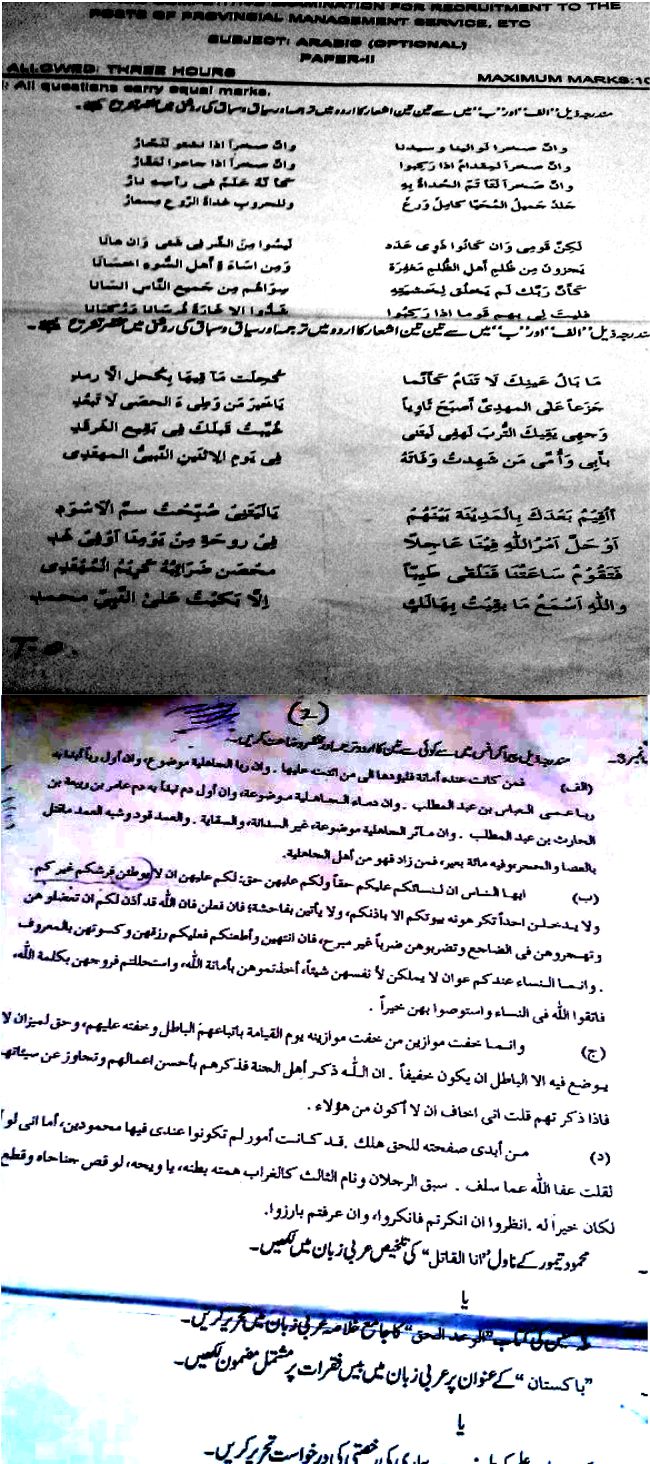 EXAMINATION FOR RECRUITMENT TO THE
POSTS OF PROVINCIAL MANAGEMENT SERVICE, ETC
SUBJECT: ARABIC (OPTIONAL)
PAPER-II
ALLOWED: THREE HOURS MAXIMUM MARKS:10
: All questions carry equal marks.
مندرجہ ذیل "الف" اور "ب" میں سے تین تین اشعار کا اردو میں ترجمہ اور سیاق و سباق کی روشنی میں مختصر تشریح کیجئے۔
وانّ صخراً لوالينا وسيدنا وانّ صخراً اذا نشتو لنحّارُ
وانّ صخراً لمِقدامٌ اذا رَكِبوا وانّ صخراً اذا جاعوا لعَقّارُ
وانّ صخراً لتَاتَمّ الهُداةُ بِهِ كَانّهُ عَلَمٌ فى رأسِهِ نارٌ
جَلدٌ جَميلُ المُحَيّا كامِلٌ وَرِعٌ وللحروبِ غداةَ الرّوعِ مِسعارُ
لكِنّ قومِى وَان كَانُوا ذَوِى عَدَدٍ لَيسُوا مِنَ الشّرِ فى شَى وَان هَانَا
يَجزونَ مِن ظُلمِ اَهلِ الظُلمِ مَغفِرَة وَمِن اسَاءَةِ اَهلِ السُّوءِ احسَانَا
كَاَنّ رَبّكَ لَم يَخلُق لِخَشيَتِهِ سِوَاهُم مِن جَمِيعِ النَّاسِ انسَانَا
فليتَ لِى بِهِم قَوماً اذا رَكِبُوا شَدُّوا الاغَارَةَ فُرسَانًا وَرُكبَانَا
مندرجہ ذیل "الف" اور "ب" میں سے تین تین اشعار کا اردو میں ترجمہ اور سیاق و سباق کی روشنی میں مختصر تشریح کیجئے۔
مَا بَالُ عَينِكَ لَا تَنَامُ كَأَنَّما كُحِلَت مَآقِيهَا بِكُحلِ الاَرمَدِ
جَزَعاً عَلَى المهدِىّ اَصبَحَ ثَاوِياً يَاخَيرَ مَن وَطِىءَ الحصَى لَا تَبعُد
وَجهِى يَقِيكَ التُّربَ لَهفِى لَيتَنِى غُيّبتُ قَبلَكَ فِى بَقِيعِ الغَرقَدِ
بِأَبِى وَأُمّى مَن شَهِدتُ وَفَاتَهُ فِى يَومِ الاثنَينِ النَّبِىُّ المهتَدِى
أَأُقِيمُ بَعدَكَ بِالمَدِينَةِ بَينَهُم يَالَيتَنِى صُبّحتُ سمَّ الاَسوَدِ
اَو حَلَّ اَمرُ اللهِ فِينَا عَاجِلًا فِى روحَةٍ مِن يَومِنَا اَو فِى غَدٍ
فَتَقُومُ سَاعَتُنَا فَنَلقَى طَيّباً محضَن ضَرَائِبُهُ كَرِيمُ المُهتَدِى
واللهِ اَسمَعُ مَا بَقِيتُ بِهَالَكٍ اِلَّا بَكَيتُ عَلىٰ النَّبِىّ محمد
T.O.
(2)
نمبر 3۔ مندرجہ ذیل پیراگرافس میں سے کوئی سے تین کا اردو ترجمہ اور مختصر وضاحت کریں۔
(الف) فمن كانت عنده أمانة فليؤدها الى من ائتمنه عليها . وان ربا الجاهلية موضوع، وان أول ربا أبدأ به
ربا عمى العباس بن عبد المطلب . وان دماء الجاهلية موضوعة، وان أول دم نبدأ به دم عامر بن ربيعة بن
الحارث بن عبد المطلب . وان مآثر الجاهلية موضوعة، غير السدانة، والسقاية . والعمد قود وشبه العمد ماقتل
بالعصا والحجر وفيه مائة بعير، فمن زاد فهو من أهل الجاهلية.
(ب) ايها الناس ان لنسائكم عليكم حقاً ولكم عليهن حق: لكم عليهن ان لا يوطئن فرشكم غيركم .
ولا يدخلن احداً تكرهونه بيوتكم الا باذنكم، ولا يأتين بفاحشة؛ فان فعلن فان الله قد أذن لكم ان تعضلوهن
وتهجروهن فى المضاجع وتضربوهن ضرباً غير مبرح، فان انتهين وأطعنكم فعليكم رزقهن وكسوتهن بالمعروف
. وانما النساء عندكم عوان لا يملكن لأنفسهن شيئاً، أخذتموهن بأمانة الله، واستحللتم فروجهن بكلمة الله،
فاتقوا الله فى النساء واستوصوا بهن خيراً .
(ج) وانما خفت موازين من خفت موازينه يوم القيامة باتباعهم الباطل وخفته عليهم، وحق لميزان لا
يوضع فيه الا الباطل ان يكون خفيفاً . ان الله ذكر أهل الجنة فذكرهم بأحسن اعمالهم وتجاوز عن سيئاتهم
فاذا ذكرتهم قلت انى اخاف ان لا أكون من هؤلاء .
(د) من أبدى صفحته للحق هلك . قد كانت أمور لم تكونوا عندى فيها محمودين، أما انى لو أ
لقلت عفا الله عما سلف . سبق الرجلان ونام الثالث كالغراب همته بطنه، يا ويحه، لو قص جناحاه وقطع
لكان خيراً له .انظروا ان انكرتم فانكروا، وان عرفتم بارزوا.
محمود تیمور کے ناول "أنا القاتل" کی تلخیص عربی زبان میں لکھیں۔
یا
طہ حسین کی کتاب "الوعد الحق" کا جامع خلاصہ عربی زبان میں تحریر کریں۔
"پاکستان" کے عنوان پر عربی زبان میں بیس فقرات پر مشتمل مضمون لکھیں۔
یا
بیماری کی رخصتی کی درخواست تحریر کریں۔